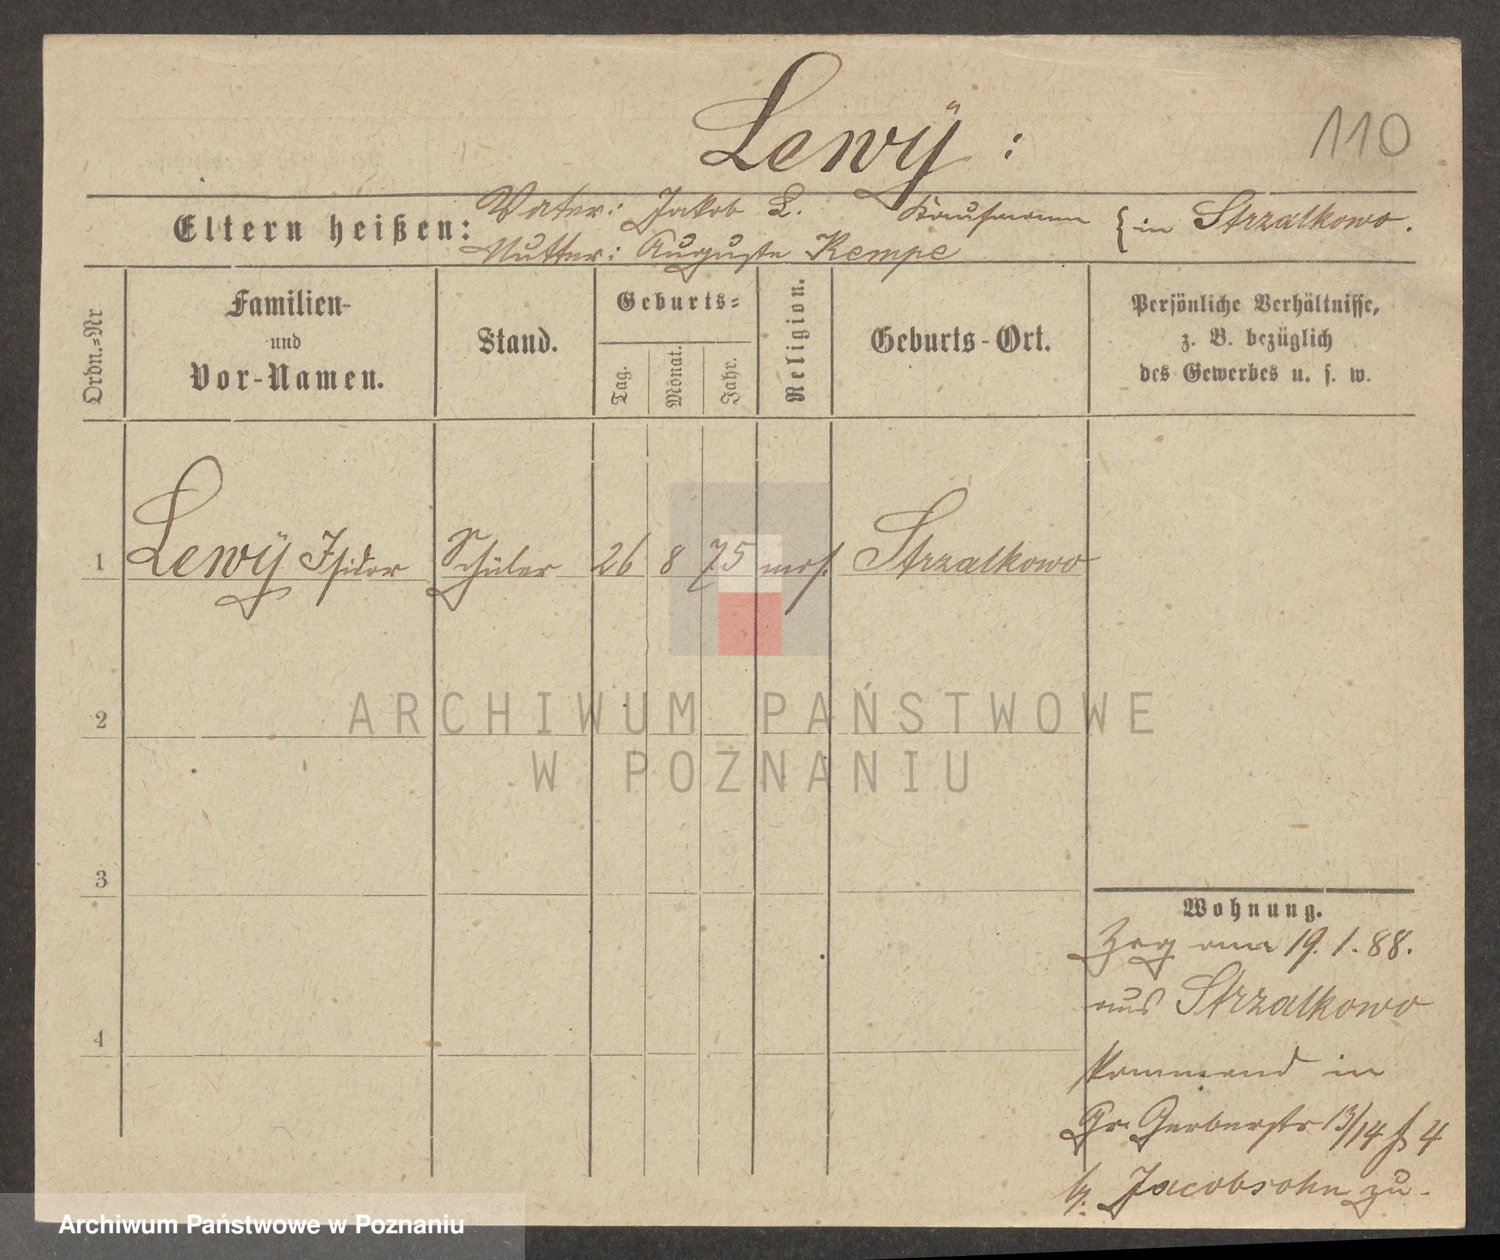 Lewÿ :
110
Eltern heißen:
Vater: Jakob L. Kaufmann { in Strzalkowo.
Mutter: Auguste Kempe
Ordn.=Nr
Familien-
und
Vor-Namen.
Stand.
Geburts=
Tag.
Monat.
Jahr.
Religion.
Geburts-Ort.
Persönliche Verhältnisse,
z. B. bezüglich
des Gewerbes u. s. w.
1 Lewÿ Isidor Schüler 26 8 75 mos. Strzalkowo
2
3
4
Wohnung.
Zog am 19. 1. 88.
aus Strzalkowo
kommend in
Gr. Gerberstr 13/14 4
b. Jacobsohn zu.
ARCHIWUM PAŃSTWOWE
W POZNANIU
Archiwum Państwowe w Poznaniu